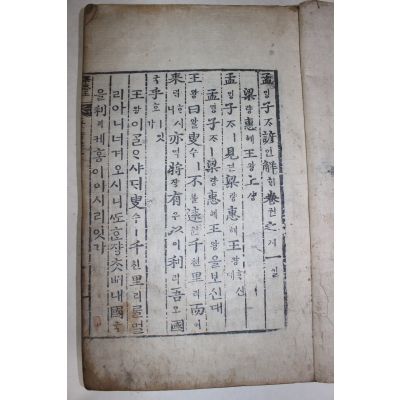 孟ᄆᆡᆼ子ᄌᆞ諺언解ᄒᆡ卷권之지一일
梁량惠혜王왕上샹
孟ᄆᆡᆼ子ᄌᆞㅣ見견梁량惠혜王왕ᄒᆞ신대
孟ᄆᆡᆼ子ᄌᆞㅣ梁량惠혜王왕을보신대
王왕曰왈叟수ㅣ不블遠원千쳔里리而이
來ᄅᆡᄒᆞ시니亦역將쟝有유以이利리吾오國
국乎호ㅣ잇가
王왕이ᄀᆞᆯᄋᆞ샤ᄃᆡ叟수ㅣ千쳔里리ᄅᆞᆯ멀
리아니너겨오시니ᄯᅩᄒᆞᆫ쟝ᄎᆞᆺᄡᅥ내國국
을利리케홈이이시리잇가